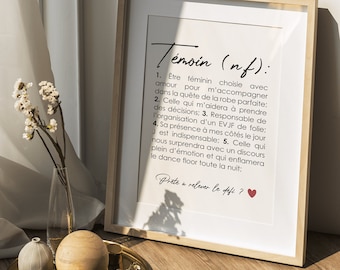 Témoin (nf):
1. Être féminin choisie avec
amour pour m'accompagner
dans la quête de la robe parfaite;
2. Celle qui m'aidera à prendre
des décisions; 3. Responsable de
l'organisation d'un EVJF de folie;
4. Sa présence à mes côtés le jour
J est indispensable; 5. Celle qui
nous surprendra avec un discours
plein d'émotion et qui enflamera
le dance floor toute la nuit;
Prête à relever le défi ?